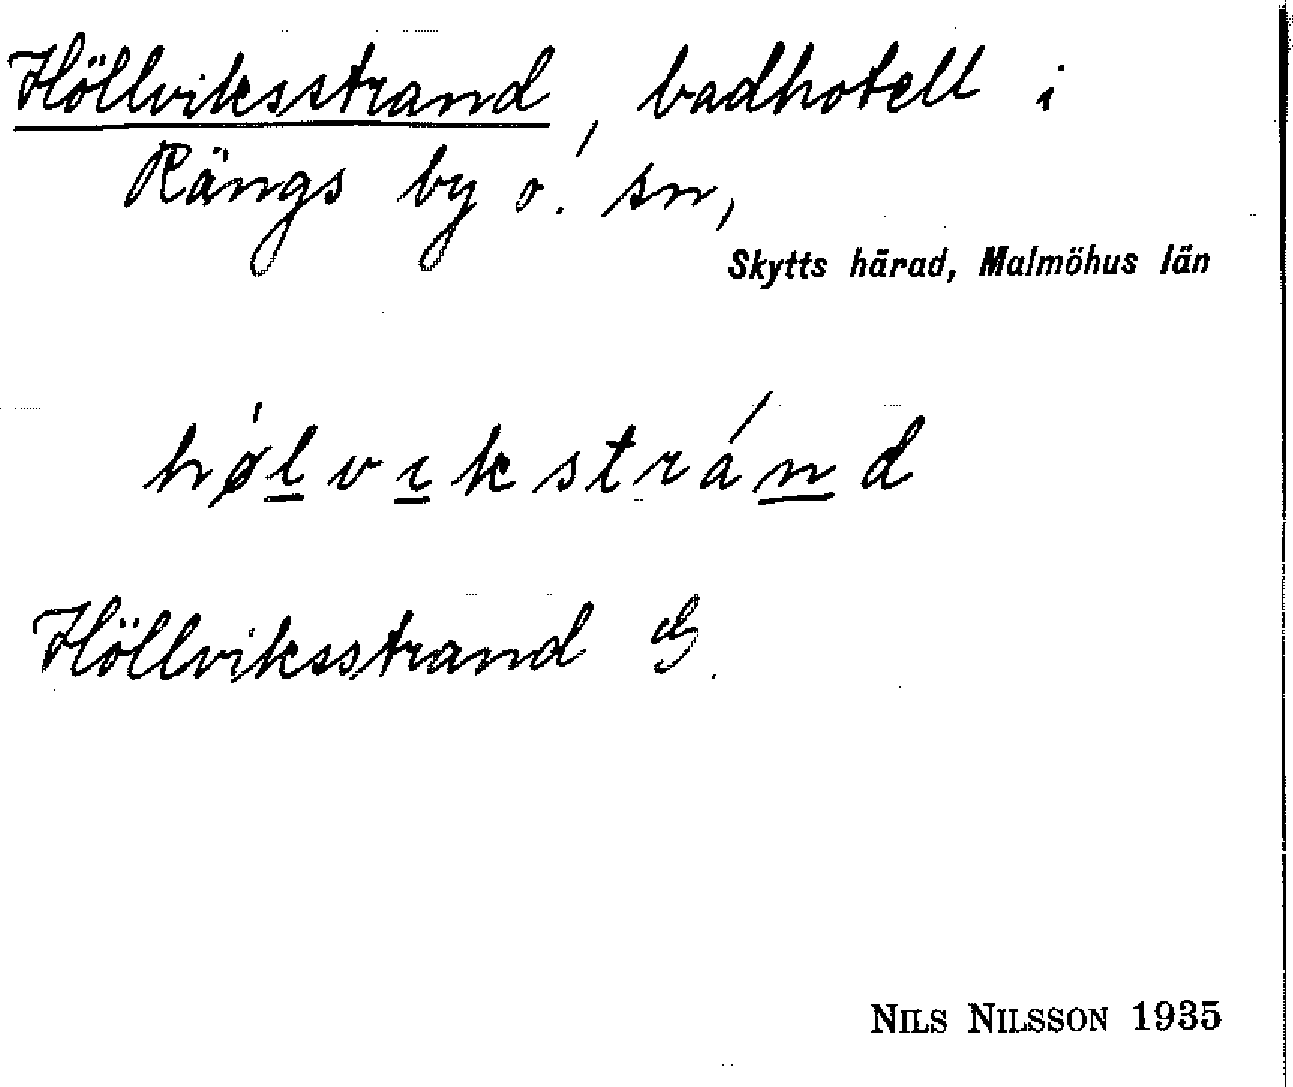 Höllviksstrand, badhotell i
Rängs by o. sn,
Skytts härad, Malmöhus län
hǿlvıkstránd
Höllviksstrand G.
NILS NILSSON 1935